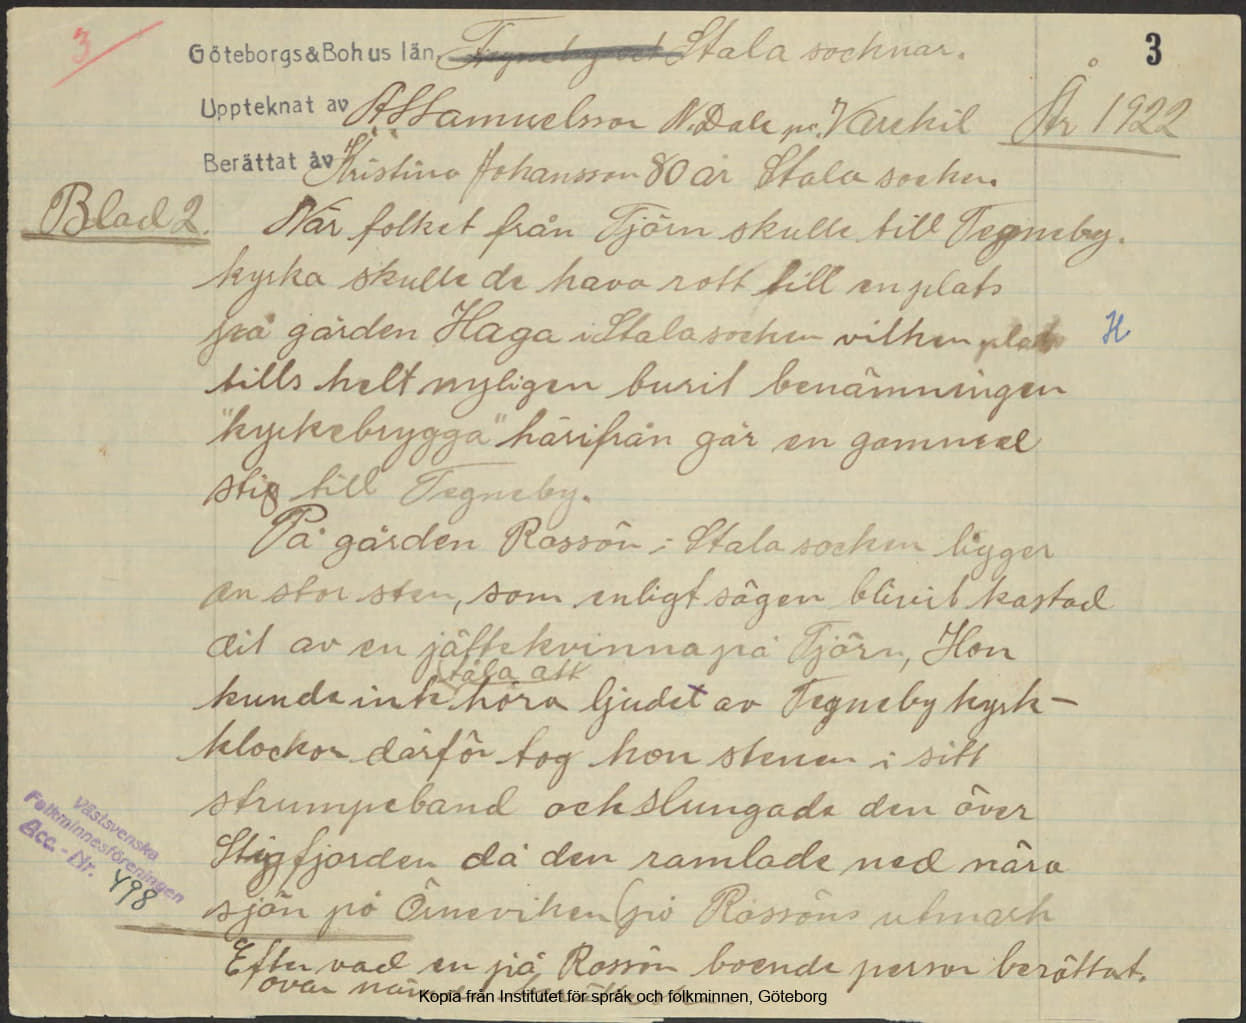 3
Göteborgs & Bohus län, Tegneby och Stala socknar.
3
Uppteknat av A S Samuelsson N. Dale pr. Varekil År 1922
Berättat av Kristina Johansson 80 år Stala socken.
Blad 2.
När folket från Tjörn skulle till Tegneby.
kyrka skulle de hava rott till en plats
på gården Haga i Stala socken vilken plats
H
tills helt nyligen burit benämningen
"kyrkebrygga" härifrån går en gammal
stig till Tegneby.
På gården Rossön i Stala socken ligger
en stor sten, som enligt sägen blivit kastad
dit av en jättekvinna på Tjörn, Hon
tåla att
kunde inte höra ljudet av Tegneby kyrk-
klockor därför tog hon stenen i sitt
strumpeband och slungade den över
Stigfjorden då den ramlade ned nära
sjön på Örneviken (på Rossöns utmark
Efter vad en på Rossön boende person berättat.
ovan
Västsvenska
Folkminnesföreningen
Acc.-Nr. 498
Kopia från Institutet för språk och folkminnen, Göteborg